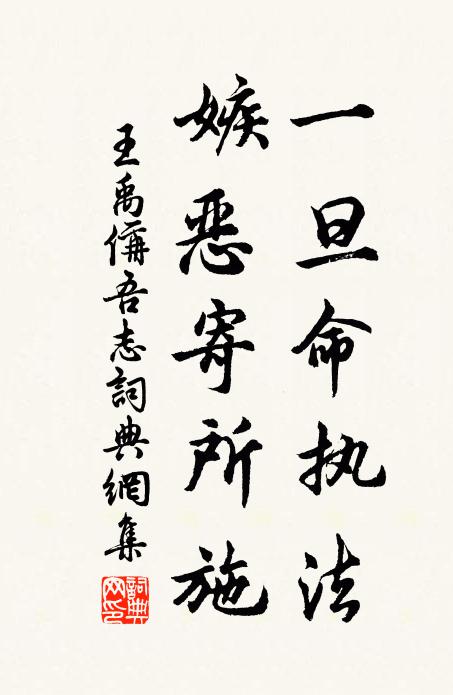 一旦命执法
嫉恶寄所施
王禹偁吾志詞典網集
詞典
网印